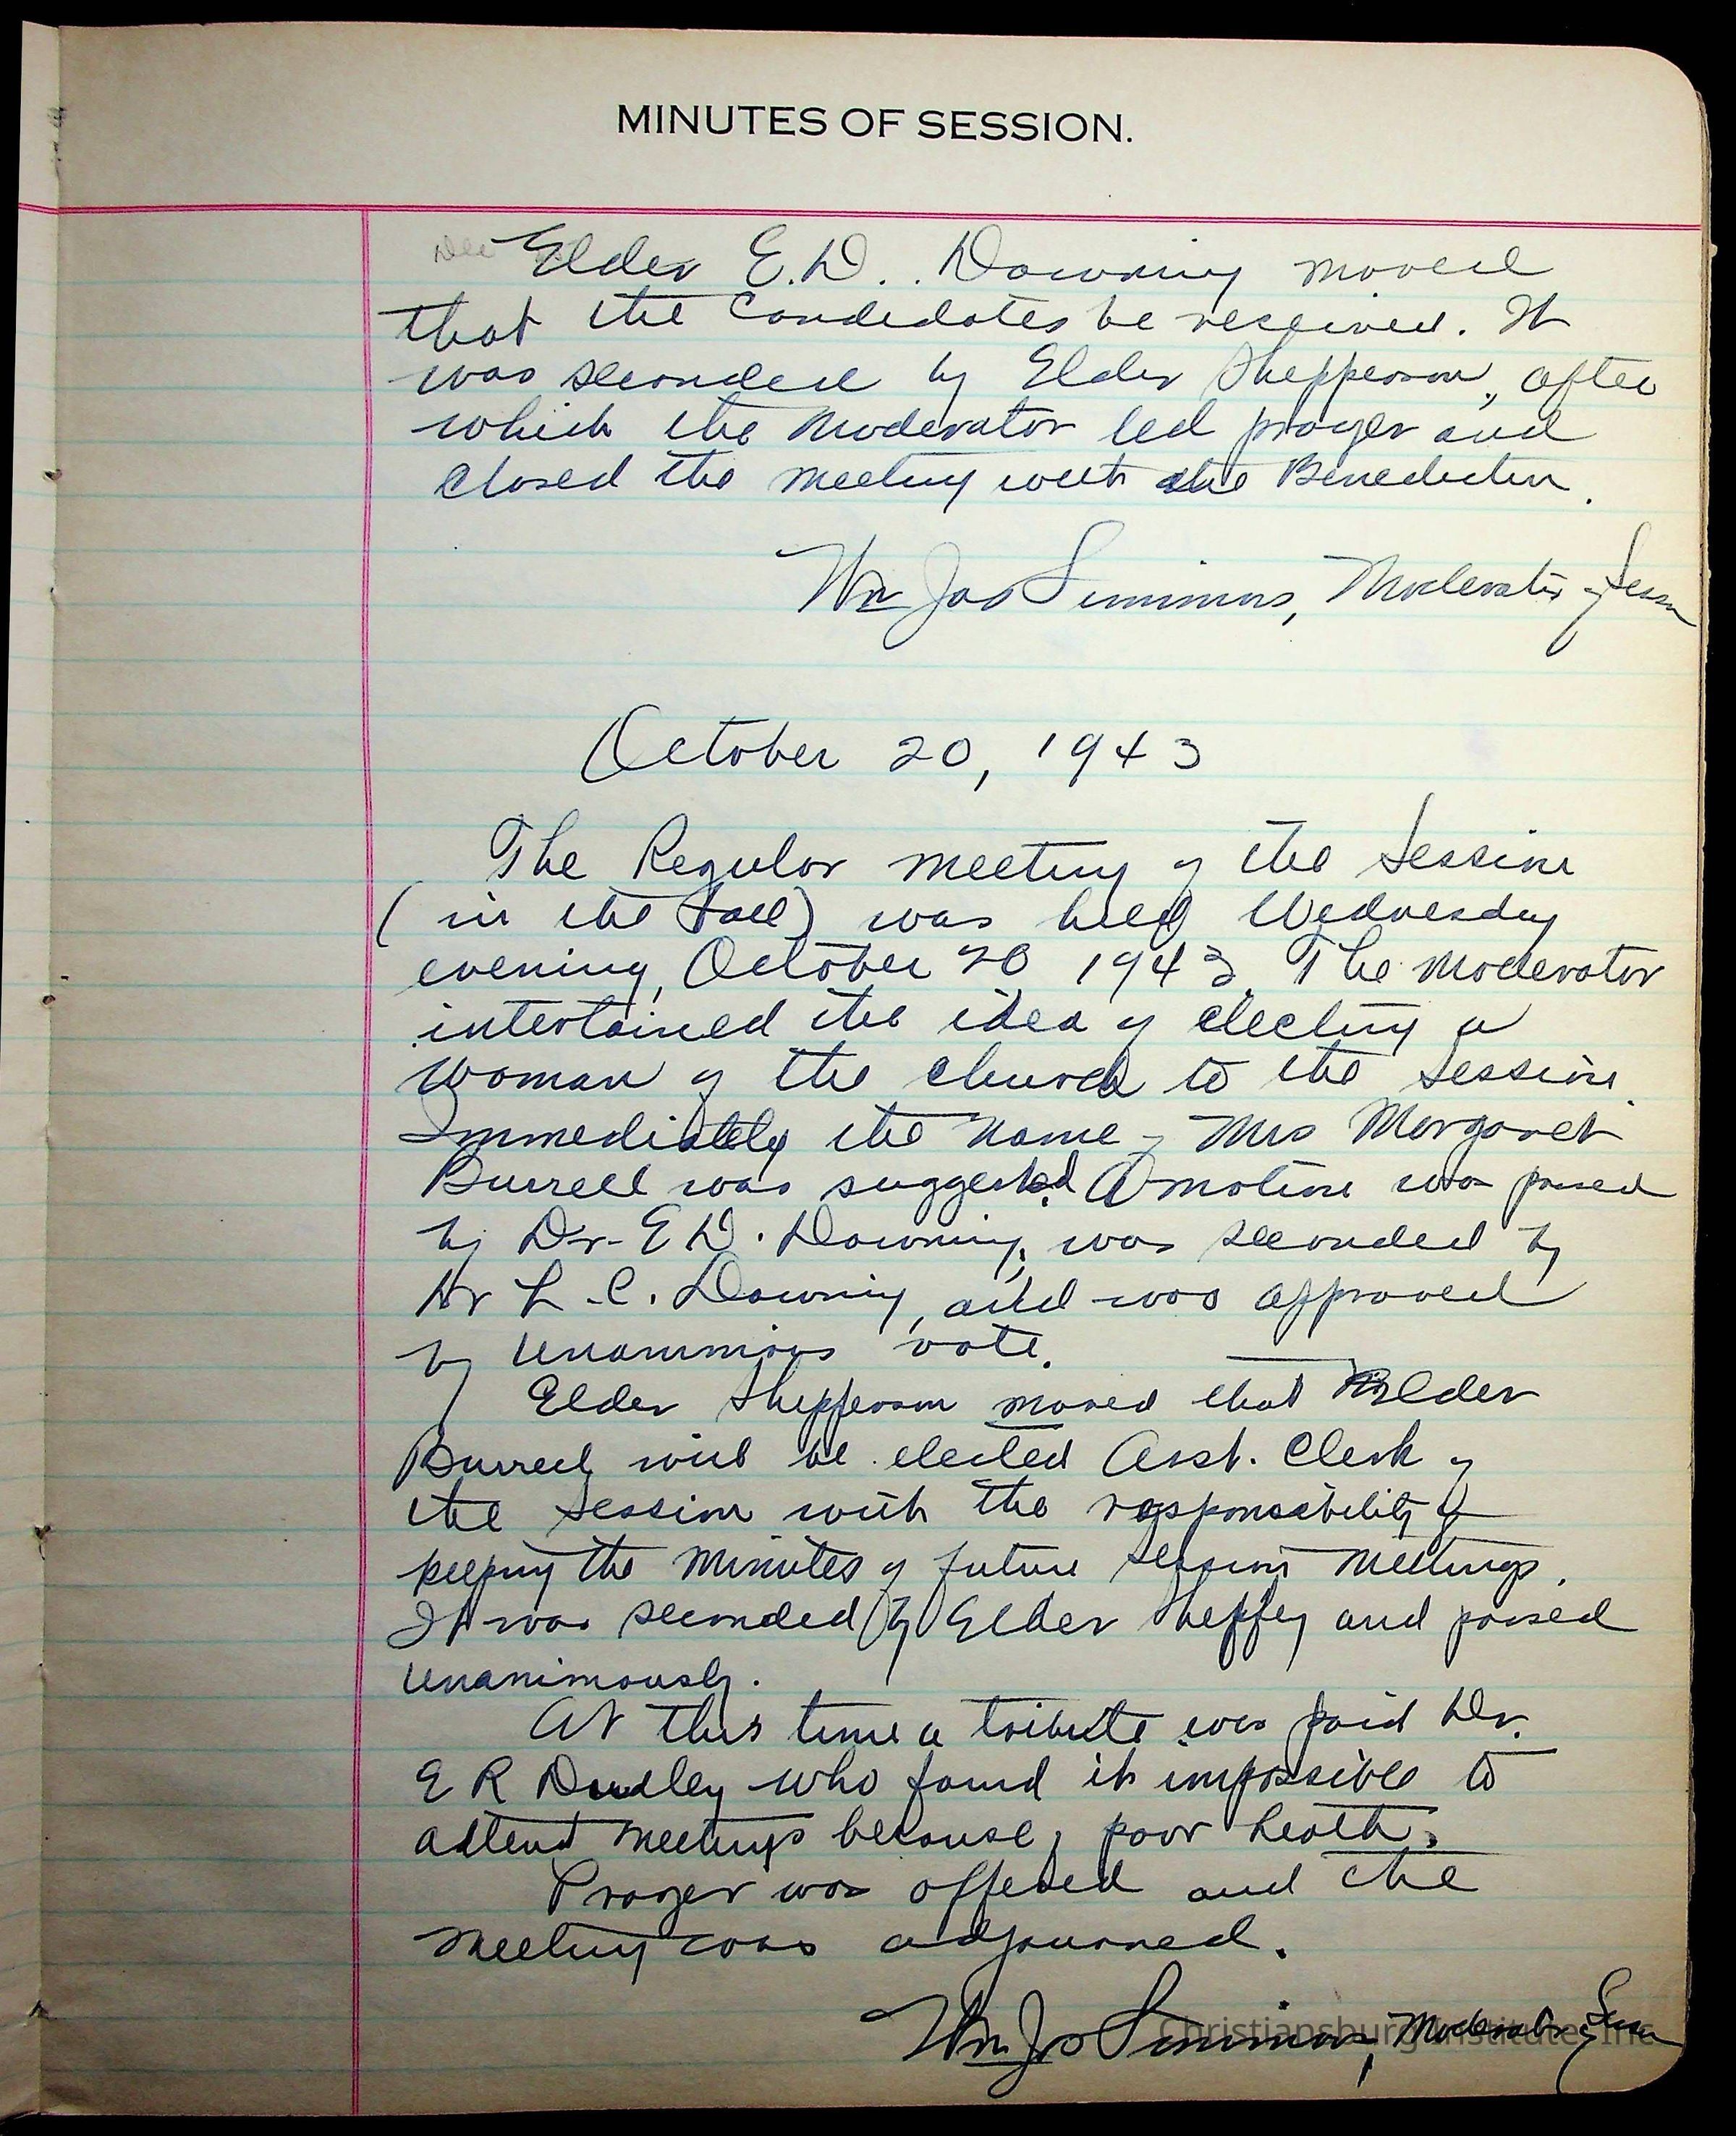 MINUTES OF SESSION.
Elder E.D. Downing moved
that the Candidates be received. It
was seconded by Elder Shepperson, after
which the Moderator led prayer and
closed the meeting with the Benediction.
Wm Jas Simmons, Moderator of Session
October 20, 1943
The Regular meeting of the Session
(in the Fall) was held Wednesday
evening, October 20 1943. The Moderator
intertained the idea of electing a
woman of the church to the session.
Immediately the name of Mrs Margaret
Burrell was suggested. A motion was passed
by Dr. E D. Downing, was seconded by
Dr L.C. Downing, and was approved
by unanimous vote.
Elder Shepperson moved that Elder
Burrell will be elected Asst. Clerk of
the session with the responsibility of
keeping the minutes of future session meetings.
It was seconded by Elder Sheffey and passed
unanimously.
At this time a tribute was paid Dr.
E R Dudley who found it impossible to
attend meetings because of poor health.
Prayer was offered and the
meeting was adjourned.
Wm Jas Simmons, Moderator of Session
Christiansburg Institute, Inc.